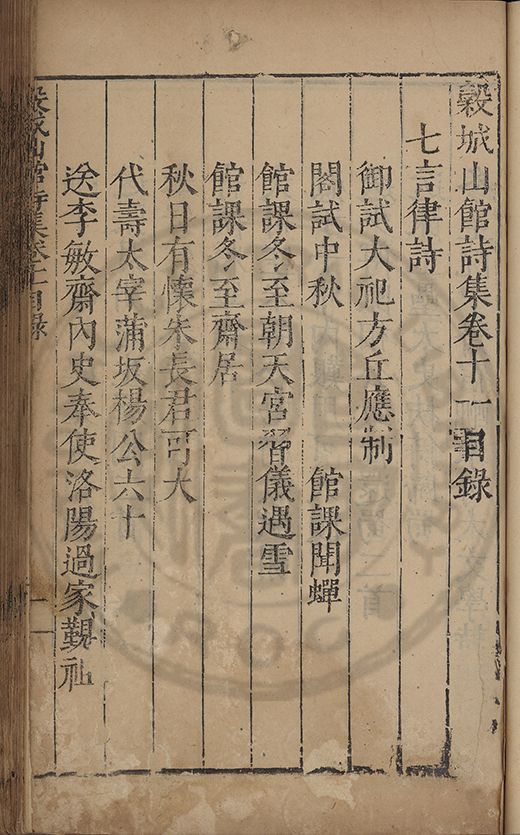 穀城山館詩集卷十一目錄
七言律詩
御試大祀方丘應制
閣試中秋 館課聞蟬
館課冬至朝天宮習儀遇雪
館課冬至齋居
秋日有懷朱長君可大
代壽太宰蒲坂楊公六十
送李敏齋內史奉使洛陽過家覲祉
穀城山館詩集卷十一目錄